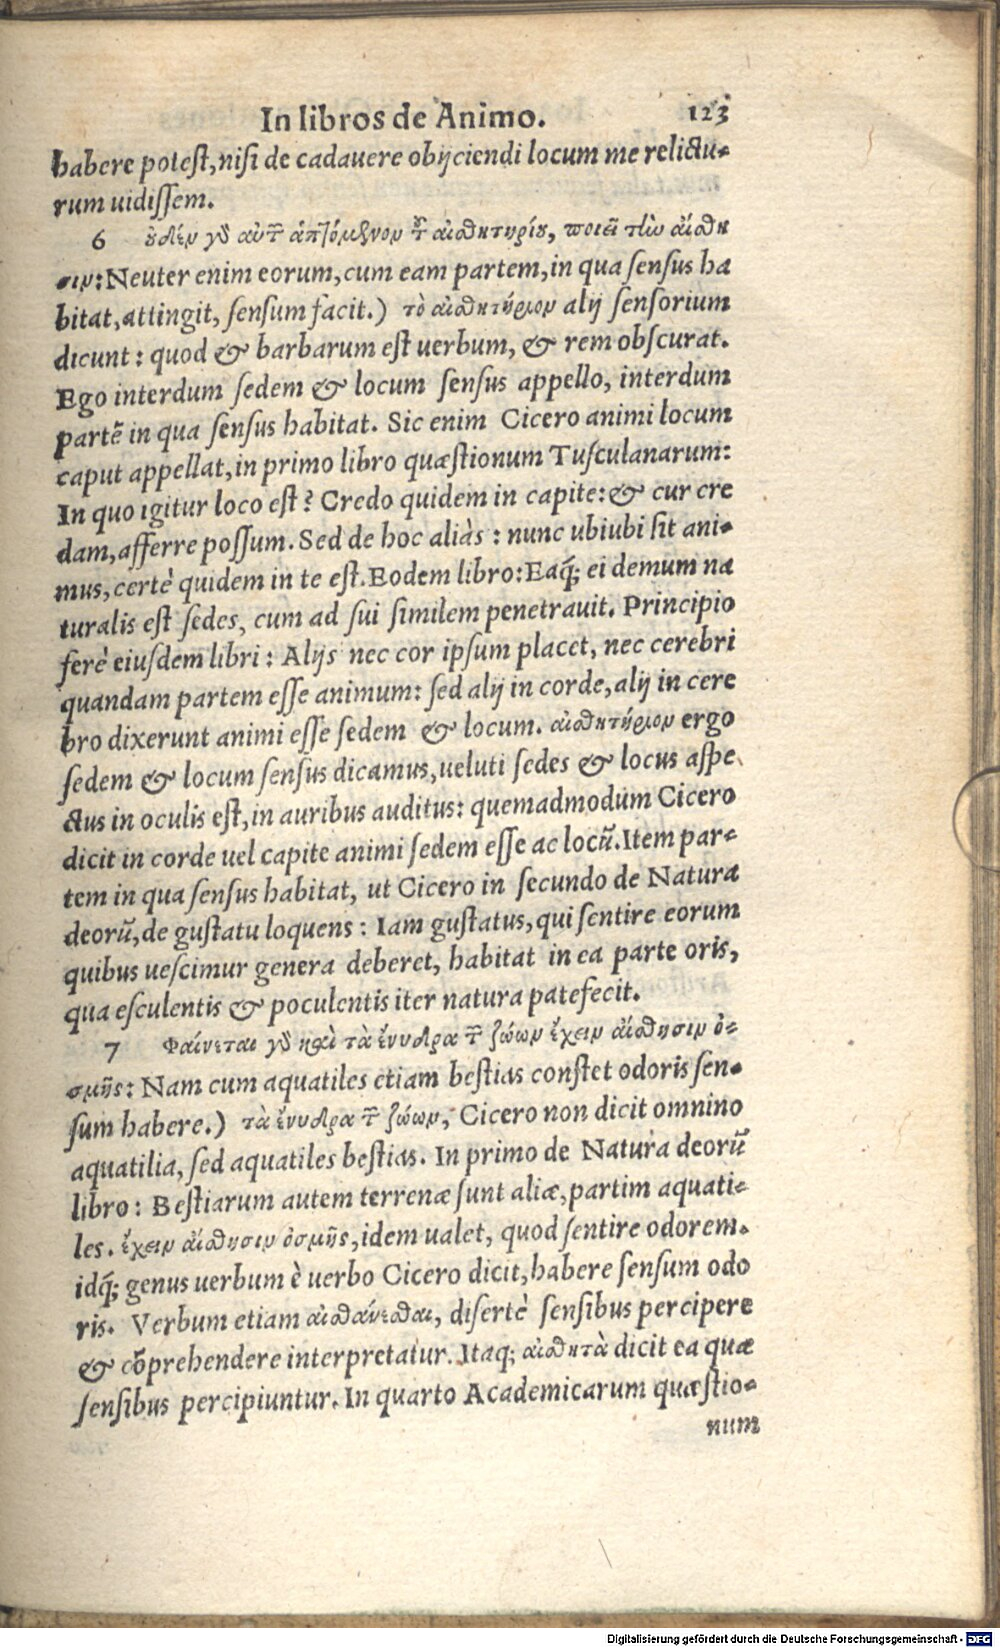 In libros de Animo. 123
habere potest, nisi de cadauere obijciendi locum me relictu-
rum uidissem.
6 οὐδὲν γὸ αὐτῶν ἁπτόμενον τοῦ αἰσθητηρίου, ποιεῖ τὴν αἴσθη
σιν: Neuter enim eorum, cum eam partem, in qua sensus ha
bitat, attingit, sensum facit.) τὸ αἰσθητήριον alij sensorium
dicunt: quod & barbarum est uerbum, & rem obscurat.
Ego interdum sedem & locum sensus appello, interdum
partē in qua sensus habitat. Sic enim Cicero animi locum
caput appellat, in primo libro quæstionum Tusculanarum:
In quo igitur loco est? Credo quidem in capite: & cur cre
dam, afferre possum. Sed de hoc aliàs: nunc ubiubi sit ani-
mus, certè quidem in te est. Eodem libro: Eaq́; ei demum na
turalis est sedes, cum ad sui similem penetrauit. Principio
ferè eiusdem libri: Alijs nec cor ipsum placet, nec cerebri
quandam partem esse animum: sed alij in corde, alij in cere
bro dixerunt animi esse sedem & locum. αἰσθητήριον ergo
sedem & locum sensus dicamus, ueluti sedes & locus aspe
ctus in oculis est, in auribus auditus: quemadmodum Cicero
dicit in corde uel capite animi sedem esse ac locū. Item par-
tem in qua sensus habitat, ut Cicero in secundo de Natura
deorū, de gustatu loquens: Iam gustatus, qui sentire eorum
quibus uescimur genera deberet, habitat in ea parte oris,
qua esculentis & poculentis iter natura patefecit.
7 Φαίνεται γὸ καὶ τὰ ἔνυδρα τῶν ζώων ἔχειν αἴσθησιν ὀ-
σμῆς: Nam cum aquatiles etiam bestias constet odoris sen-
sum habere.) τὰ ἔνυδρα τῶν ζώων, Cicero non dicit omnino
aquatilia, sed aquatiles bestias. In primo de Natura deorū
libro: Bestiarum autem terrenæ sunt aliæ, partim aquati-
les. ἔχειν αἴσθησιν ὀσμῆς, idem ualet, quod sentire odorem.
idq́; genus uerbum è uerbo Cicero dicit, habere sensum odo
ris. Verbum etiam αἰσθάνεσθαι, disertè sensibus percipere
& cōprehendere interpretatur. Itaq; αἰσθητὰ dicit ea quæ
sensibus percipiuntur. In quarto Academicarum quæstio-
num
Digitalisierung gefördert durch die Deutsche Forschungsgemeinschaft - DFG